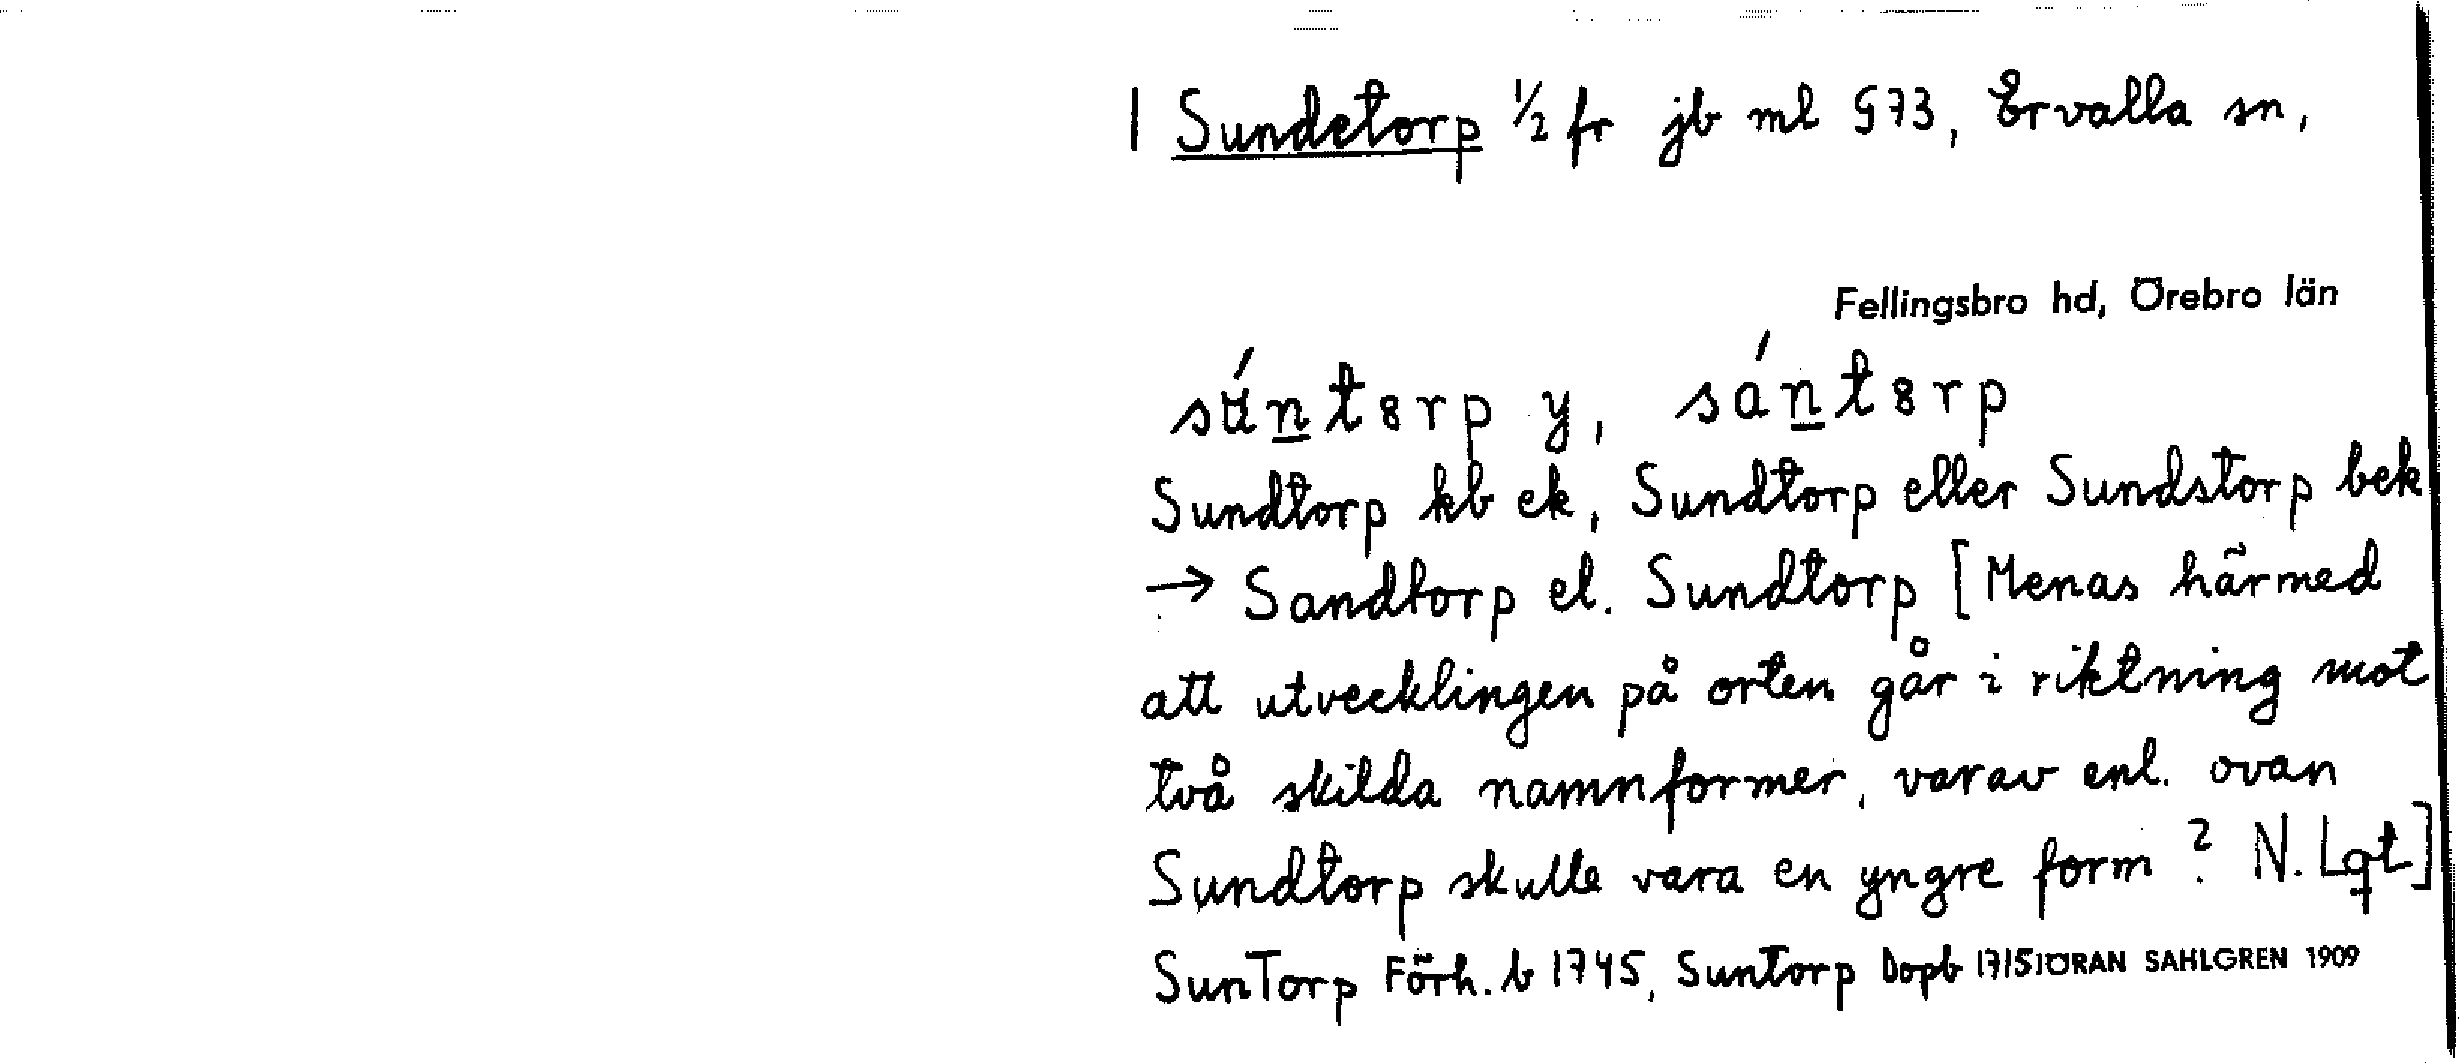 1 Sundetorp ½ fr jb ml §73, Ervalla sn,
Fellingsbro hd, Örebro län
súnt8rp y, sánt8rp
Sundtorp kb ek, Sundtorp eller Sundstorp bek
→ Sandtorp el. Sundtorp [Menas härmed
att utvecklingen på orten går i riktning mot
två skilda namnformer, varav enl. ovan
Sundtorp skulle vara en yngre form? N. Lqt]
SunTorp Förh. b 1745, Suntorp Dopb 1715 JÖRAN SAHLGREN 1909